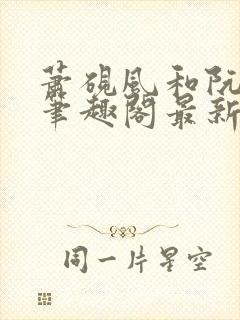 萧砚风和阮
笔趣阁最新
同一片星空